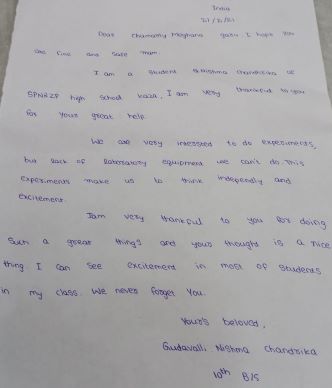 India
21/12/21
Dear Chamarty Meghana garu. I hope you
are fine and safe mam.
I am a student G.Nishma Chandrika of
SPNRZP high school kaza, I am very thankful to you
for your great help.
We are very intrested to do experiments,
but lack of laboratory equipment we can't do. This
experiments make us to think independly and
excitement.
Iam very thankful to you for doing
Such a great things and your thought is a nice
thing. I can see excitement in most of students
in my class. We never forget you.
Your's beloved,
Gudavalli Nishma Chandrika
10th B/S